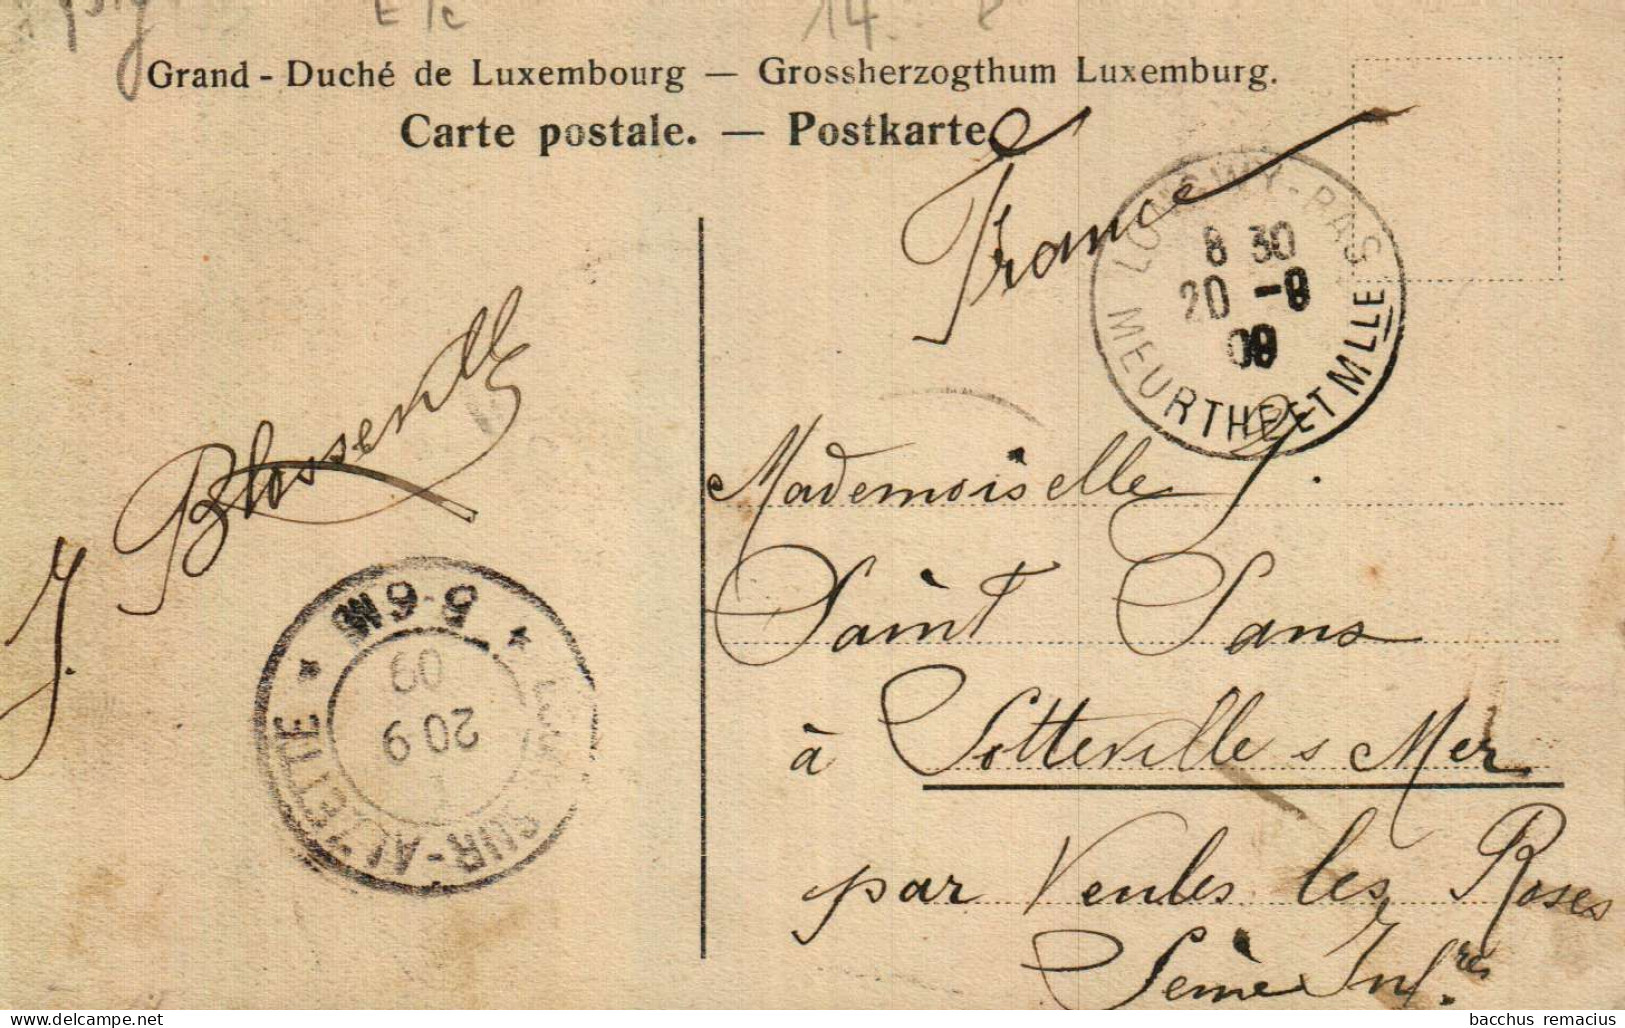 14
Grand - Duché de Luxembourg — Grossherzogthum Luxemburg.
Carte postale. — Postkarte.
France
LONGWY-BAS
8 30
20 -9
09
MEURTHE ET MLLE
J.
Mademoiselle J.
Saint Sans
à Sotteville s Mer
par Veules les Roses
Seine Infres
5-6
09
20 9
SUR-ALZETTE
bacchus remacius